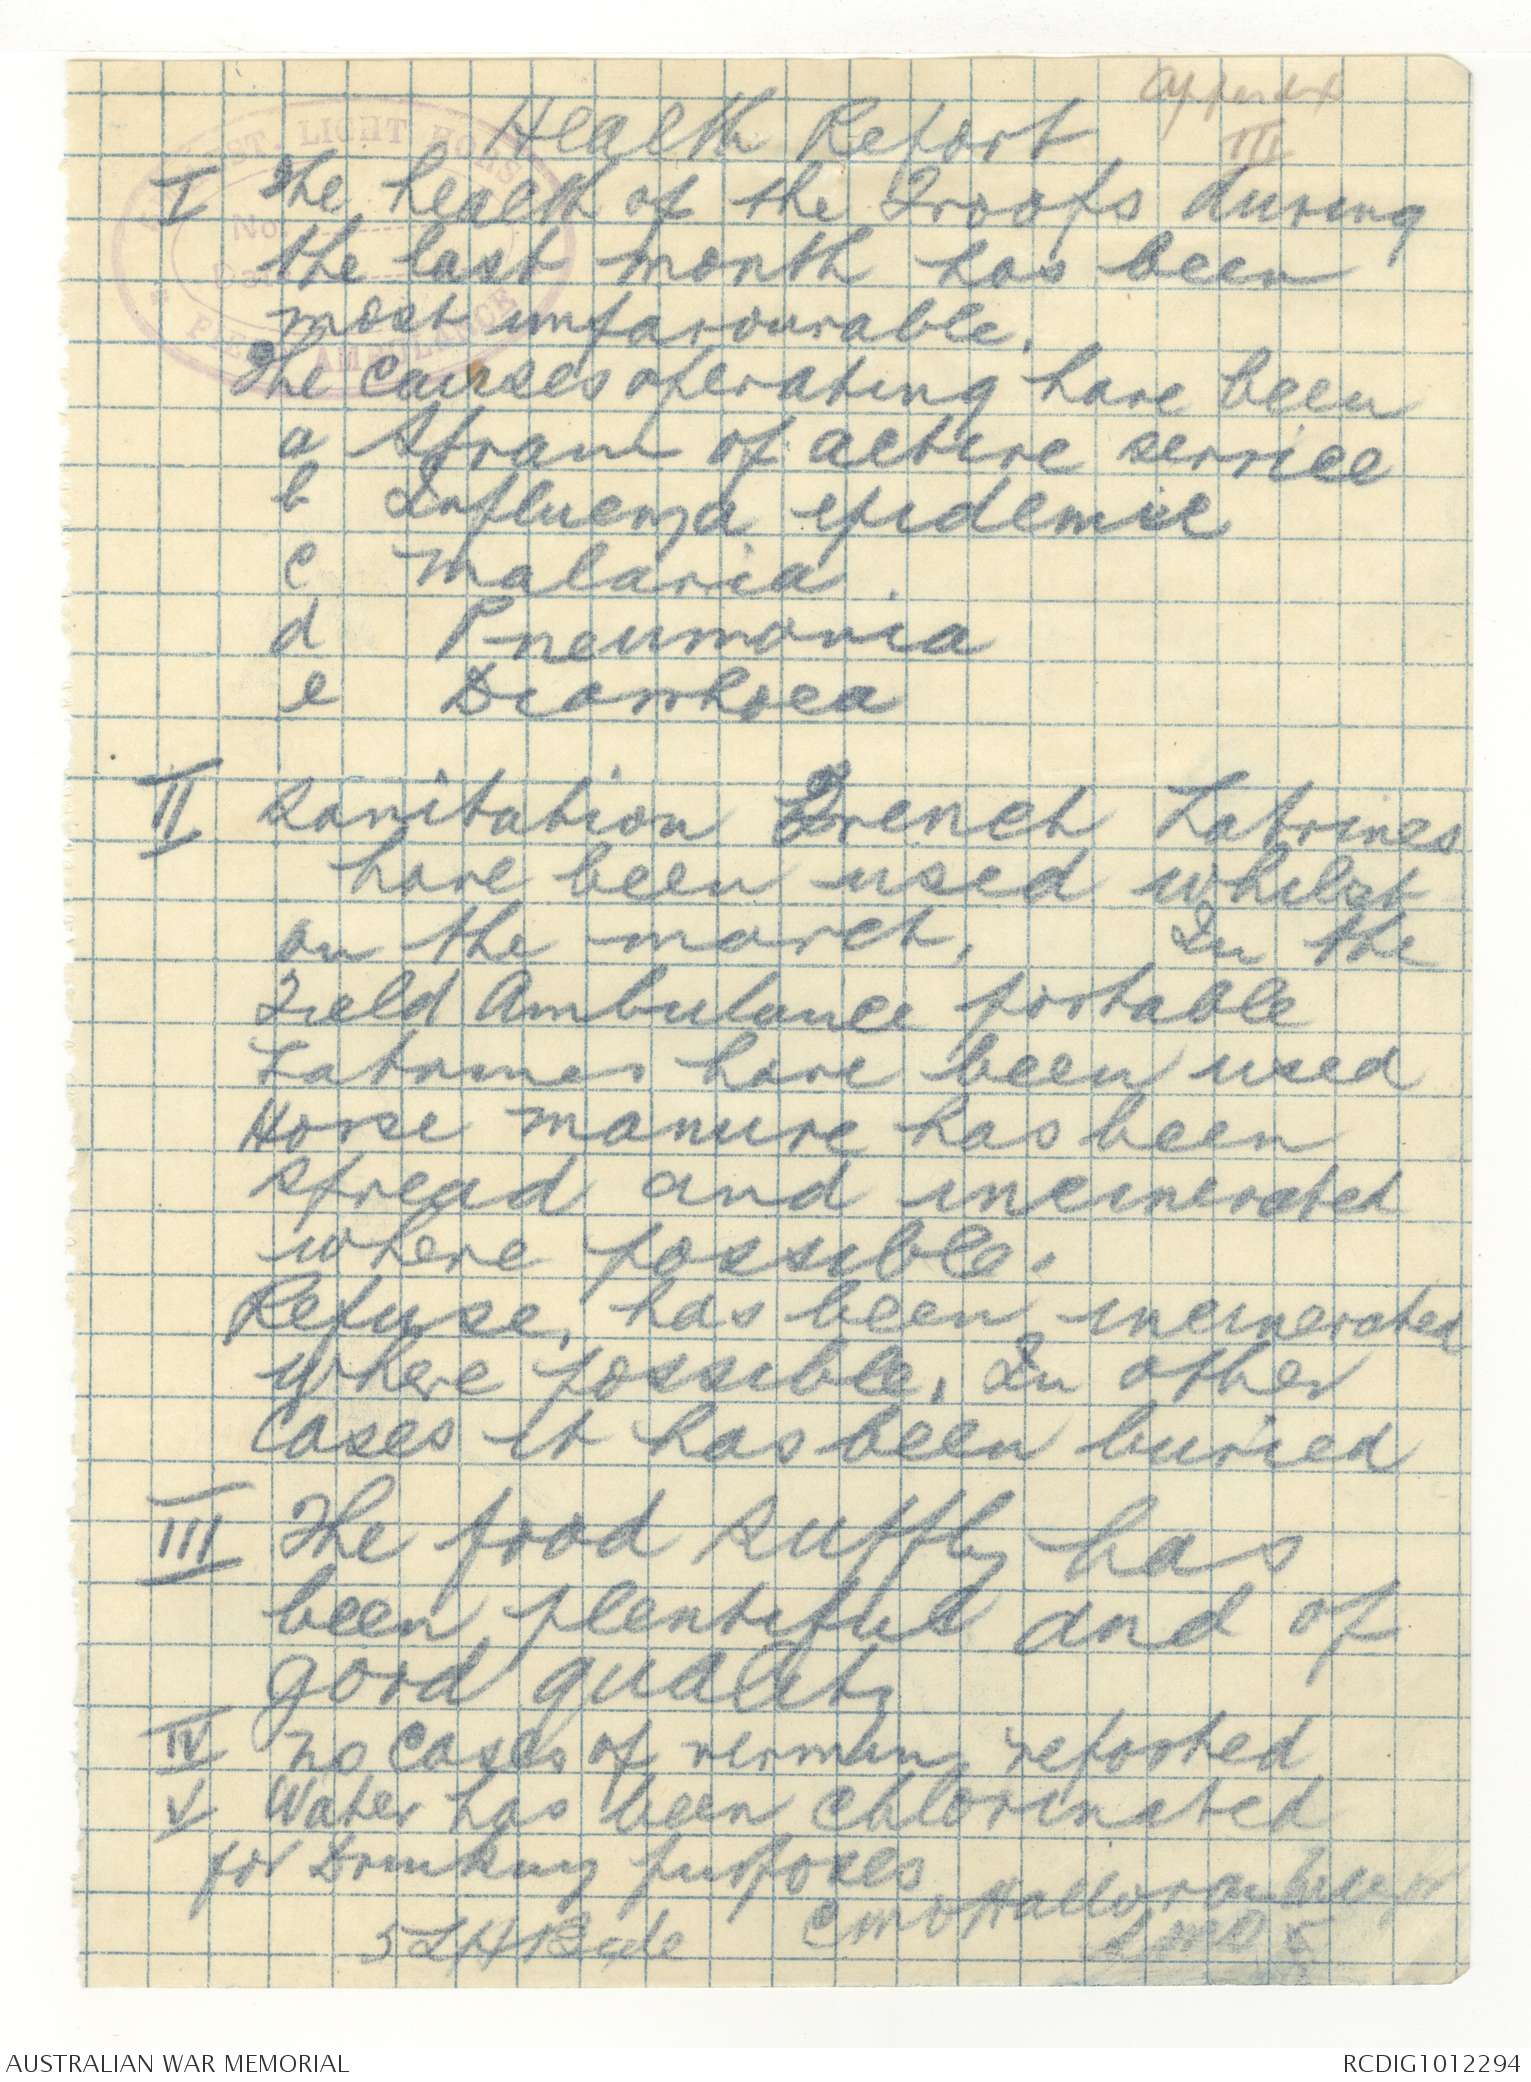 Appendix
III
Health Report
I The health of the Troops during
the last month has been
most unfavourable.
The causes operating have been
a Strain of active service
b Influenza epidemic
c Malaria.
d Pneumonia
e Diarrhoea
II Sanitation Trench Latrines
have been used whilst
on the march. In the
Field Ambulance portable
Latrines have been used
Horse manure has been
spread and incinerated
where possible.
Refuse, has been incinerated
where possible. In other
cases it has been buried
III The food supply has
been plentiful and of
good quality
IV No cases of vermin reported
V Water has been chlorinated
for Drinking purposes
C W O'Halloran
5 LH Bgde
LIGHT HORSE
No
FIELD AMBULANCE
AUSTRALIAN WAR MEMORIAL
RCDIG1012294